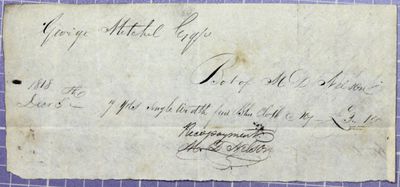 George Mitchel Esqr
Bot of M D Nelson
1818
Decr 5th 7 yds Single Width fine Blue Cloth
Recd payment
M D Nelson